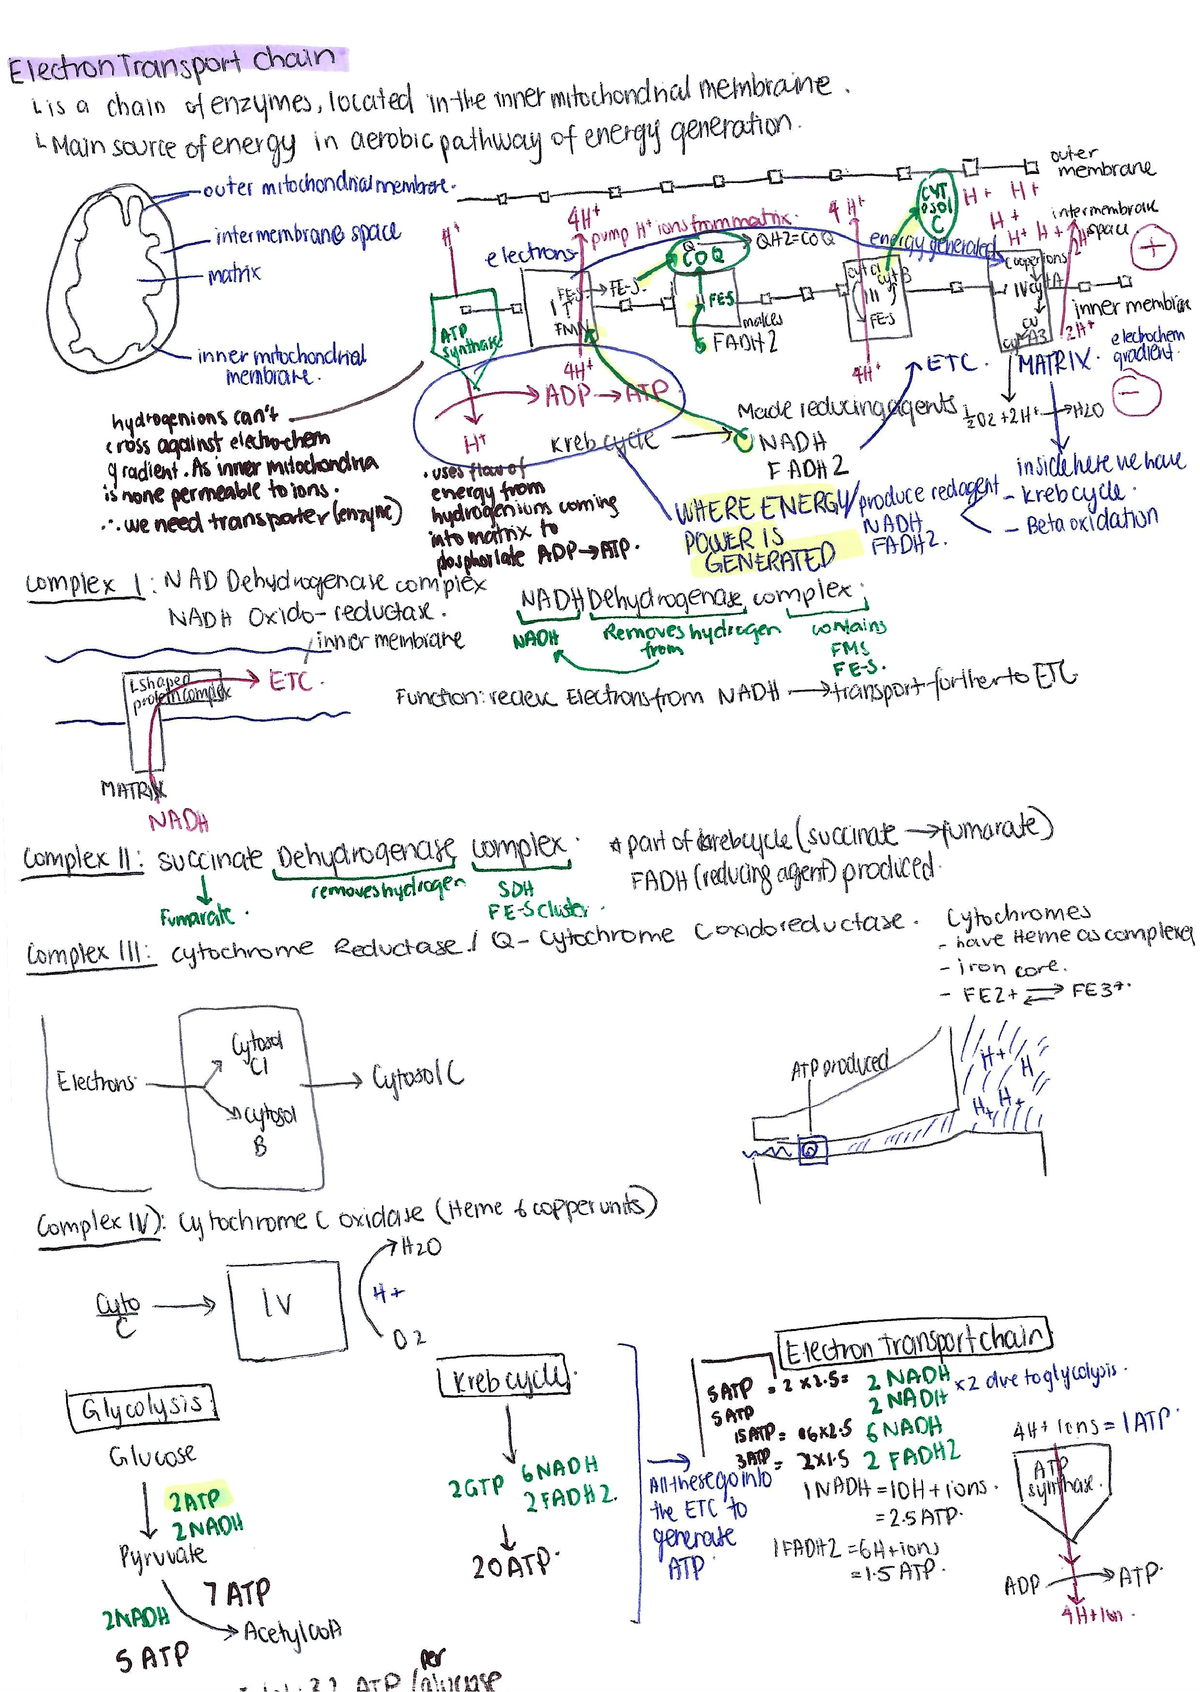 Electron Transport Chain
↳ is a chain of enzymes, located in the inner mitochondrial membrane.
↳ Main source of energy in aerobic pathway of energy generation.
outer mitochondrial membrane.
intermembrane space
matrix
inner mitochondrial
membrane.
outer
membrane
H+
4H+
pump H+ ions from matrix.
4H+
CYT
OSOl
C
H+ H+
H+
H+ H+
2H+
intermembrane
space
+
electrons
Q
COQ
QH2=COQ
energy generated
Cooper ions
ATP
synthase
FE-S → FE-S
I
FMN
FES
makes
FADH2
cyt C1
cyt B
III
FE-S
IV
cyt A
CU
cyt A3
2H+
inner membrane
electrochem
gradient.
−
4H+
4H+
→ ETC.
MATRIX.
½O2+2H+ → H2O
ADP → ATP
H+
Kreb cycle → NADH
FADH2
Made reducing agents
hydrogen ions can't
cross against electrochem
gradient. As inner mitochondria
is none permeable to ions.
∴ we need transporter (enzyme)
• uses flow of
energy from
hydrogenions coming
into matrix to
phosphorlate ADP→ATP.
WHERE ENERGY/
POWER IS
GENERATED
produce red agent
NADH
FADH2.
inside here we have
- Kreb cycle.
- Beta oxidation
Complex I: NAD Dehydrogenase complex
NADH Oxido-reductase.
NADH Dehydrogenase complex;
NADH
Removes hydrogen
from
contains
FMS
FE-S.
inner membrane
L shaped
protein complex
→ ETC.
Function: recieve Electrons from NADH → transport further to ETC
MATRIX
NADH
Complex II: Succinate Dehydrogenase complex.
* part of krebcycle (succinate → fumarate)
FADH (reducing agent) produced.
Fumarate.
removes hydrogen
SDH
FE-S cluster.
Complex III: Cytochrome Reductase / Q- Cytochrome C oxidoreductase.
Cytochromes
- have Heme as complexes
- iron core.
- FE2+ ⇌ FE3+.
Electrons
Cytosol
C1
Cytosol
B
→ Cytosol C
ATP produced
H+ H
H+ H+
Complex IV): Cytochrome C oxidase (Heme & copper units)
Cyto
C
→ IV
H2O
H+
O2
Glycolysis
Glucose
2ATP
2NADH
Pyruvate
7 ATP
2NADH
5 ATP
Acetyl CoA
Kreb cycle.
2GTP 6NADH
2FADH2.
20 ATP.
All these go into
the ETC to
generate
ATP.
Electron transport chain
5ATP = 2 x 2.5 = 2 NADH
5ATP 2 NADH
x2 due to glycolysis.
15ATP = 6x2.5 6NADH
3ATP = 2x1.5 2 FADH2
1 NADH = 10H+ ions.
= 2.5 ATP.
1 FADH2 = 6H+ ions
= 1.5 ATP.
4H+ ions = 1 ATP.
ATP
synthase.
ADP → ATP.
4H+ ion.
per